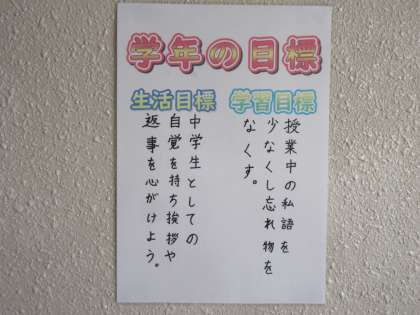 学年の目標
学習目標
授業中の私語を
少なくし忘れ物を
なくす。
生活目標
中学生としての
自覚を持ち挨拶や
返事を心がけよう。